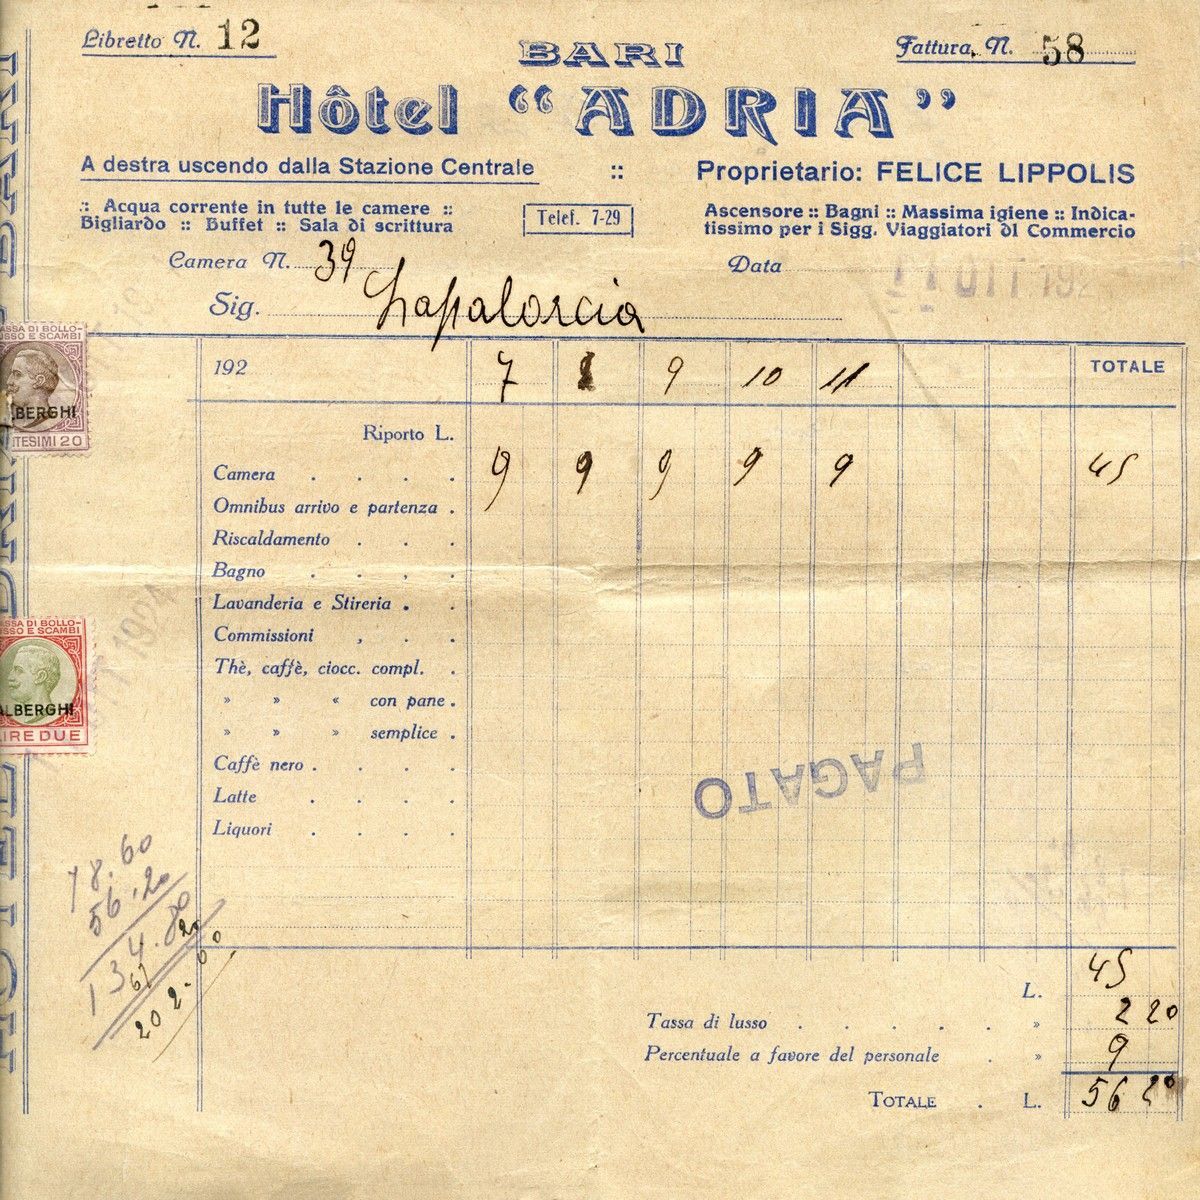 Libretto N. 12
BARI
Fattura N. 58
Hôtel “ADRIA”
A destra uscendo dalla Stazione Centrale :: Proprietario: FELICE LIPPOLIS
.: Acqua corrente in tutte le camere ::
Bigliardo :: Buffet :: Sala di scrittura
Telef. 7-29
Ascensore :: Bagni :: Massima igiene :: Indica-
tissimo per i Sigg. Viaggiatori di Commercio
Camera N. 39
Data 11 OTT 192
Sig. Lapalorcia
192 7 8 9 10 11 TOTALE
Riporto L.
Camera . . . . 9 9 9 9 9 45
Omnibus arrivo e partenza .
Riscaldamento . . .
Bagno . . . .
Lavanderia e Stireria . .
Commissioni , . .
Thè, caffè, ciocc. compl. .
» » « con pane .
» » » semplice .
Caffè nero . . . .
Latte . . . .
Liquori . . . .
PAGATO
TASSA DI BOLLO-
LUSSO E SCAMBI
ALBERGHI
CENTESIMI 20
TASSA DI BOLLO-
LUSSO E SCAMBI
ALBERGHI
LIRE DUE
OTT 1924
78.60
56.20
134.80
67 20
202.00
L. 45
Tassa di lusso . . . . . » 2 20
Percentuale a favore del personale . » 9
TOTALE . L. 56 20